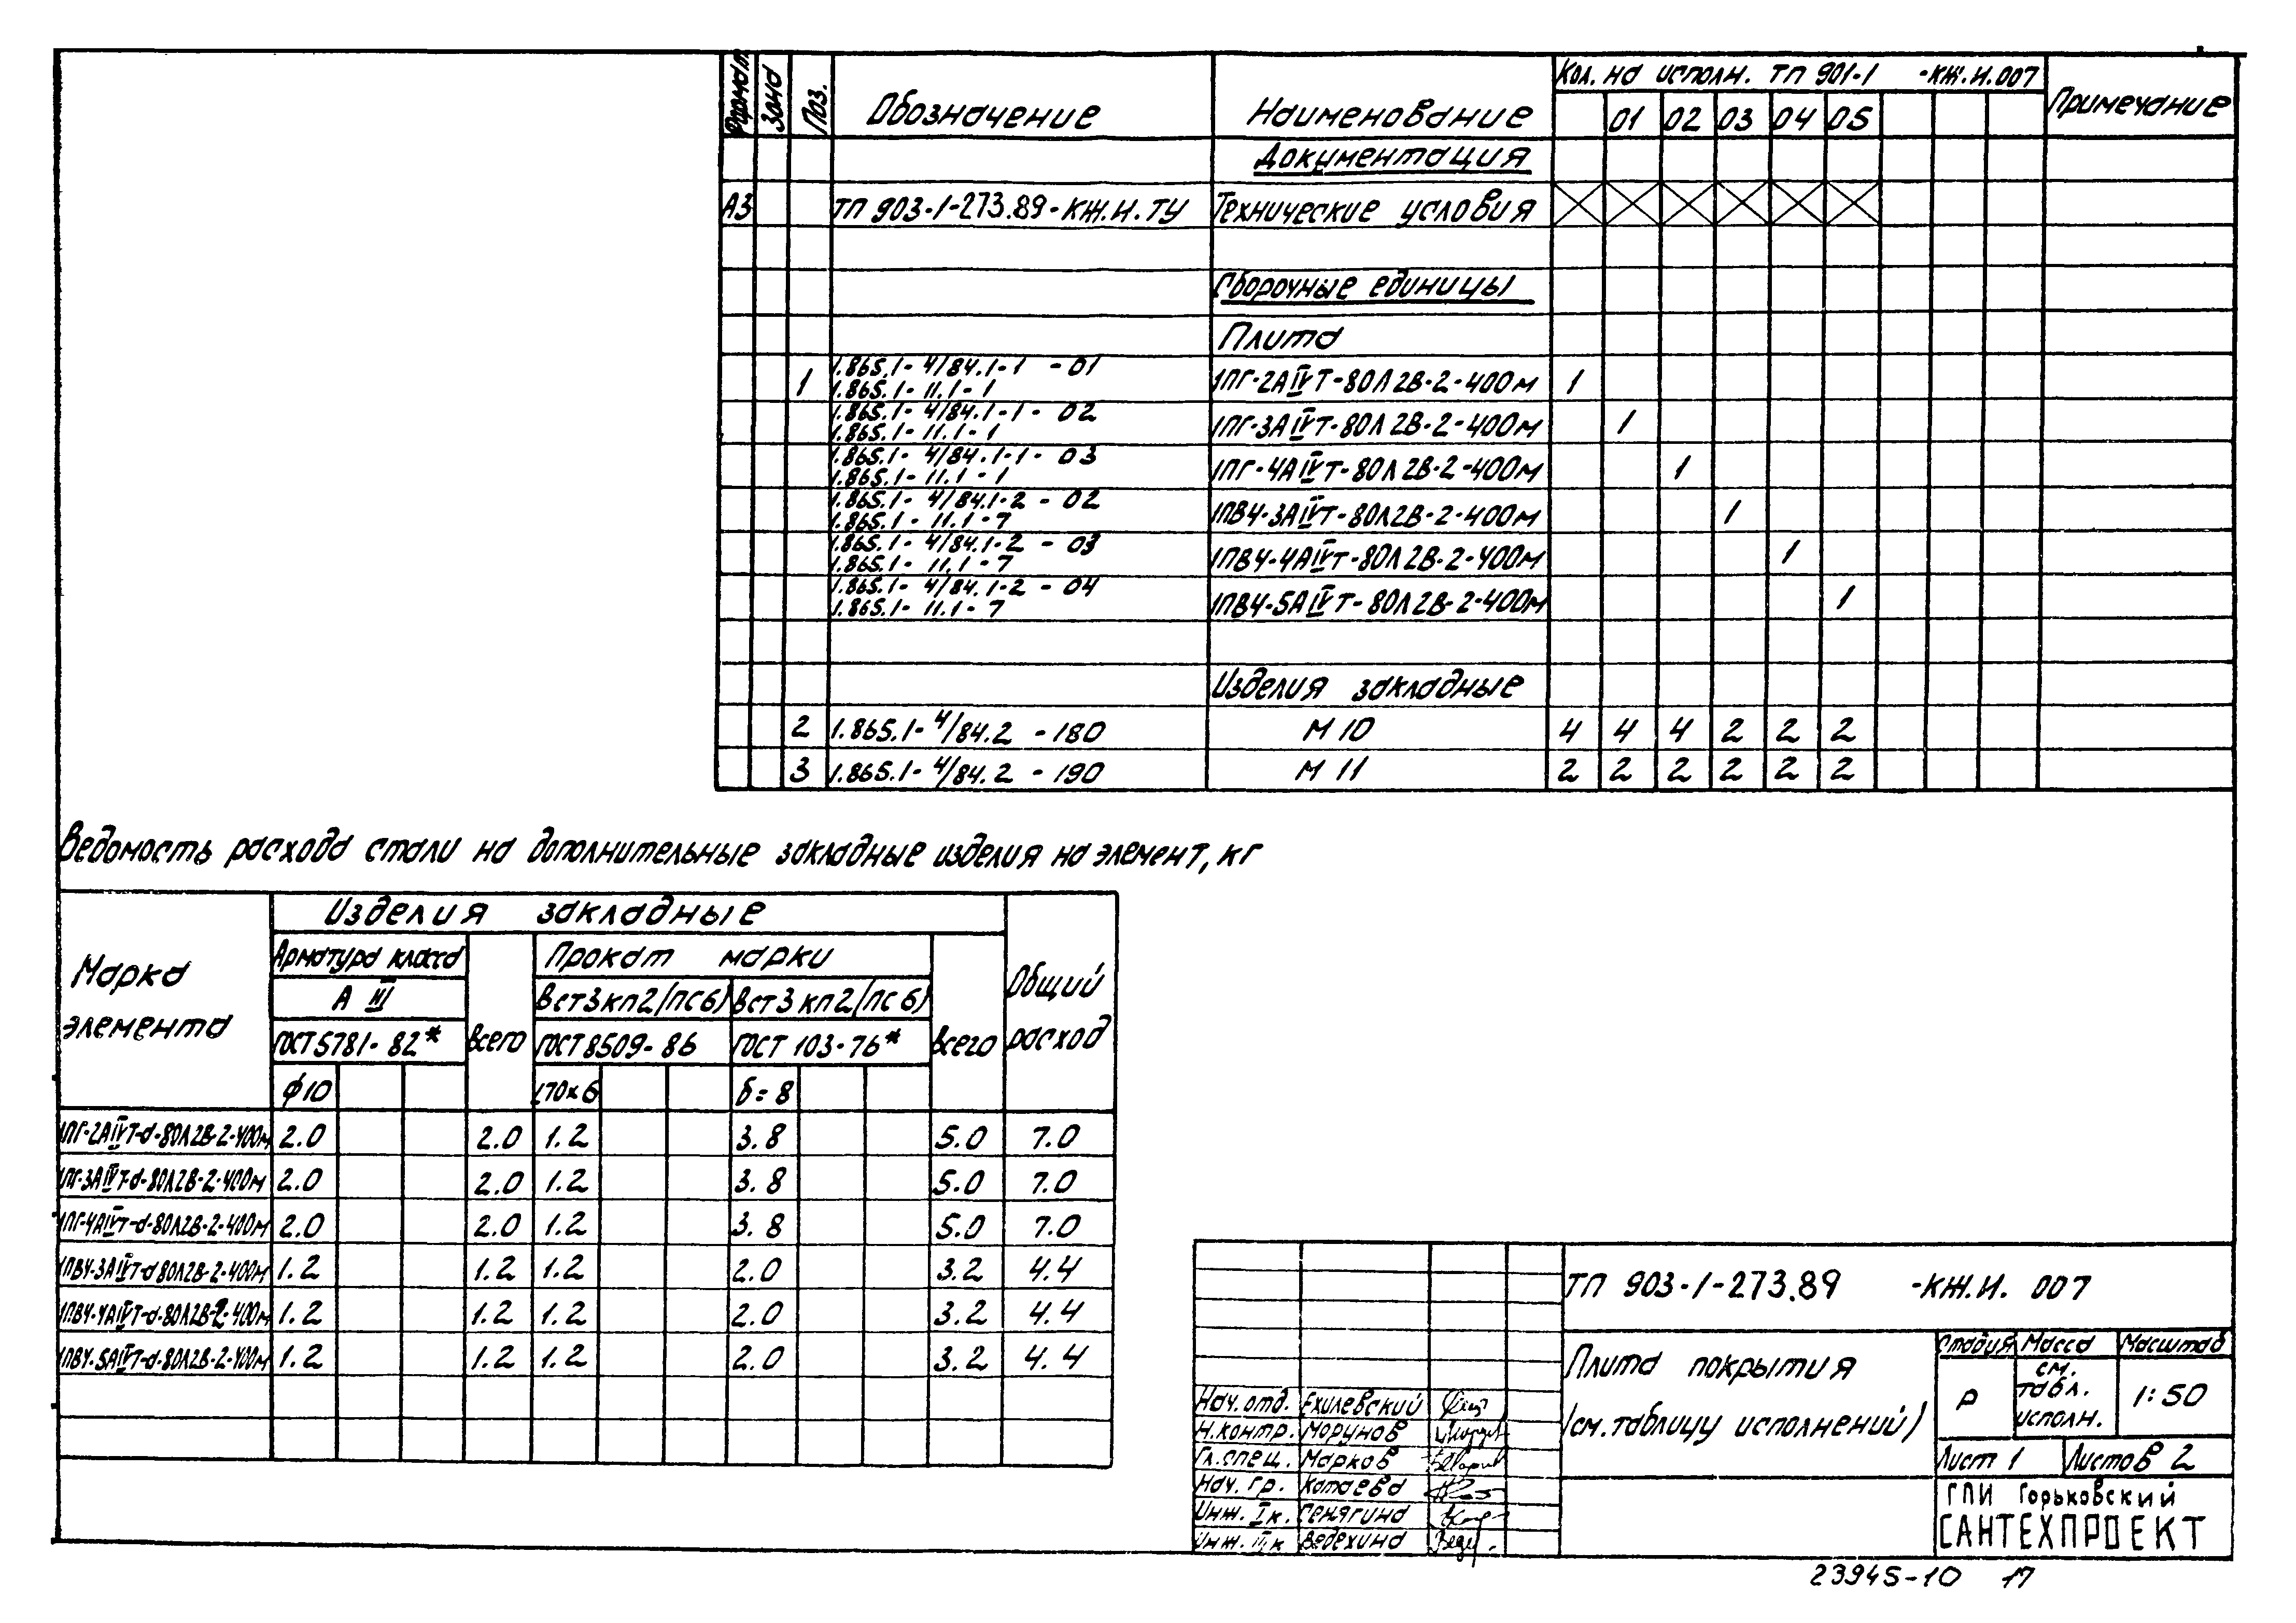 Формат Зона Поз. Обозначение Наименование Кол. на исполн. ТП 901-1 -КЖ.И.007 Примечание
01 02 03 04 05
Документация
А3 ТП 903-1-273.89-КЖ.И.ТУ Технические условия
Сборочные единицы
Плита
1.865.1-4/84.1-1 -01
1 1.865.1-11.1-1 1ПГ-2АIVТ-80Л2В-2-400м 1
1.865.1-4/84.1-1-02
1.865.1-11.1-1 1ПГ-3АIVТ-80Л2В-2-400м 1
1.865.1-4/84.1-1-03
1.865.1-11.1-1 1ПГ-4АIVТ-80Л2В-2-400м 1
1.865.1-4/84.1-2-02
1.865.1-11.1-7 1ПВ4-3АIVТ-80Л2В-2-400м 1
1.865.1-4/84.1-2-03
1.865.1-11.1-7 1ПВ4-4АIVТ-80Л2В-2-400м 1
1.865.1-4/84.1-2-04
1.865.1-11.1-7 1ПВ4-5АIVТ-80Л2В-2-400м 1
Изделия закладные
2 1.865.1-4/84.2 -180 М 10 4 4 4 2 2 2
3 1.865.1-4/84.2 -190 М 11 2 2 2 2 2 2
Ведомость расхода стали на дополнительные закладные изделия на элемент, кг
Марка элемента Изделия закладные Общий расход
Арматура класса Всего Прокат марки Всего
А III Вст3кп2(пс6) Вст3кп2(пс6)
ГОСТ 5781-82* ГОСТ 8509-86 ГОСТ 103-76*
ϕ10 ∟70х6 δ=8
1ПГ-2АIVТ-а-80Л2В-2-400м 2.0 2.0 1.2 3.8 5.0 7.0
1ПГ-3АIVТ-а-80Л2В-2-400м 2.0 2.0 1.2 3.8 5.0 7.0
1ПГ-4АIVТ-а-80Л2В-2-400м 2.0 2.0 1.2 3.8 5.0 7.0
1ПВ4-3АIVТ-а80Л2В-2-400м 1.2 1.2 1.2 2.0 3.2 4.4
1ПВ4-4АIVТ-а-80Л2В-2-400м 1.2 1.2 1.2 2.0 3.2 4.4
1ПВ4-5АIVТ-а-80Л2В-2-400м 1.2 1.2 1.2 2.0 3.2 4.4
ТП 903-1-273.89 -КЖ.И. 007
Плита покрытия
(см. таблицу исполнений)
Стадия Масса Масштаб
Р см. табл. исполн. 1:50
Лист 1 Листов 2
Нач. отд. Ехилевский
Н.контр. Морунов
Гл.спец. Марков
Нач. гр. Катаева
Инж. Iк. Сенягина
Инж. IIк Ведехина
ГПИ Горьковский
САНТЕХПРОЕКТ
23945-10 17